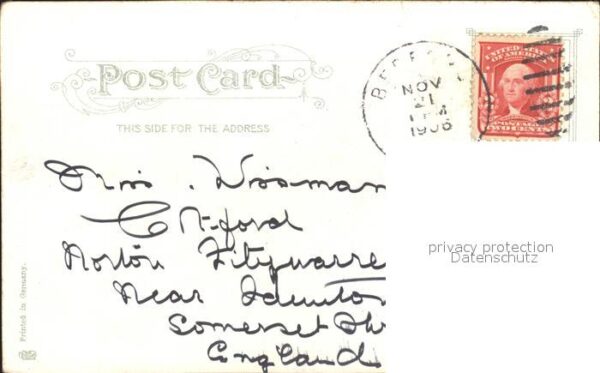 Post Card
THIS SIDE FOR THE ADDRESS
NOV
21
1906
UNITED STATES
OF AMERICA
POSTAGE
TWO CENTS
Miss. Wissman
Norton Fitzwarre
Near
Somerset Sh
England
privacy protection
Datenschutz
Printed in Germany.